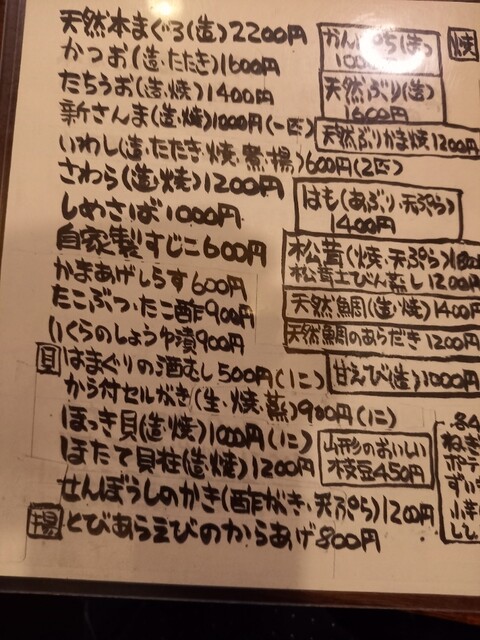 天然本まぐろ(造)2200円
かつお(造・たたき)1600円
たちうお(造・焼)1400円
新さんま(造・焼)1000円(一匹)
いわし(造・たたき・焼・煮・揚)600円(2匹)
さわら(造・焼)1200円
しめさば1000円
自家製すじこ600円
かまあげしらす600円
たこぶつ・たこ酢900円
いくらのしょうゆ漬900円
貝 はまぐりの酒むし500円(1コ)
から付セルがき(生・焼・蒸)900円(1コ)
ほっき貝(造・焼)1000円(1コ)
ほたて貝柱(造・焼)1200円
せんぽうしのかき(酢がき・天ぷら)1200円
揚 とびあらえびのからあげ800円
天然ぶり(造)
1600円
天然ぶりかま焼1200円
はも(あぶり・天ぷら)
1400円
松茸(焼・天ぷら)
松茸土びん蒸し1200円
天然鯛(造・焼)1400円
天然鯛のあらだき1200円
甘えび(造)1000円
山形のおいしい
枝豆450円
焼
各4
ねぎ
ポテ
ずい
小
しし